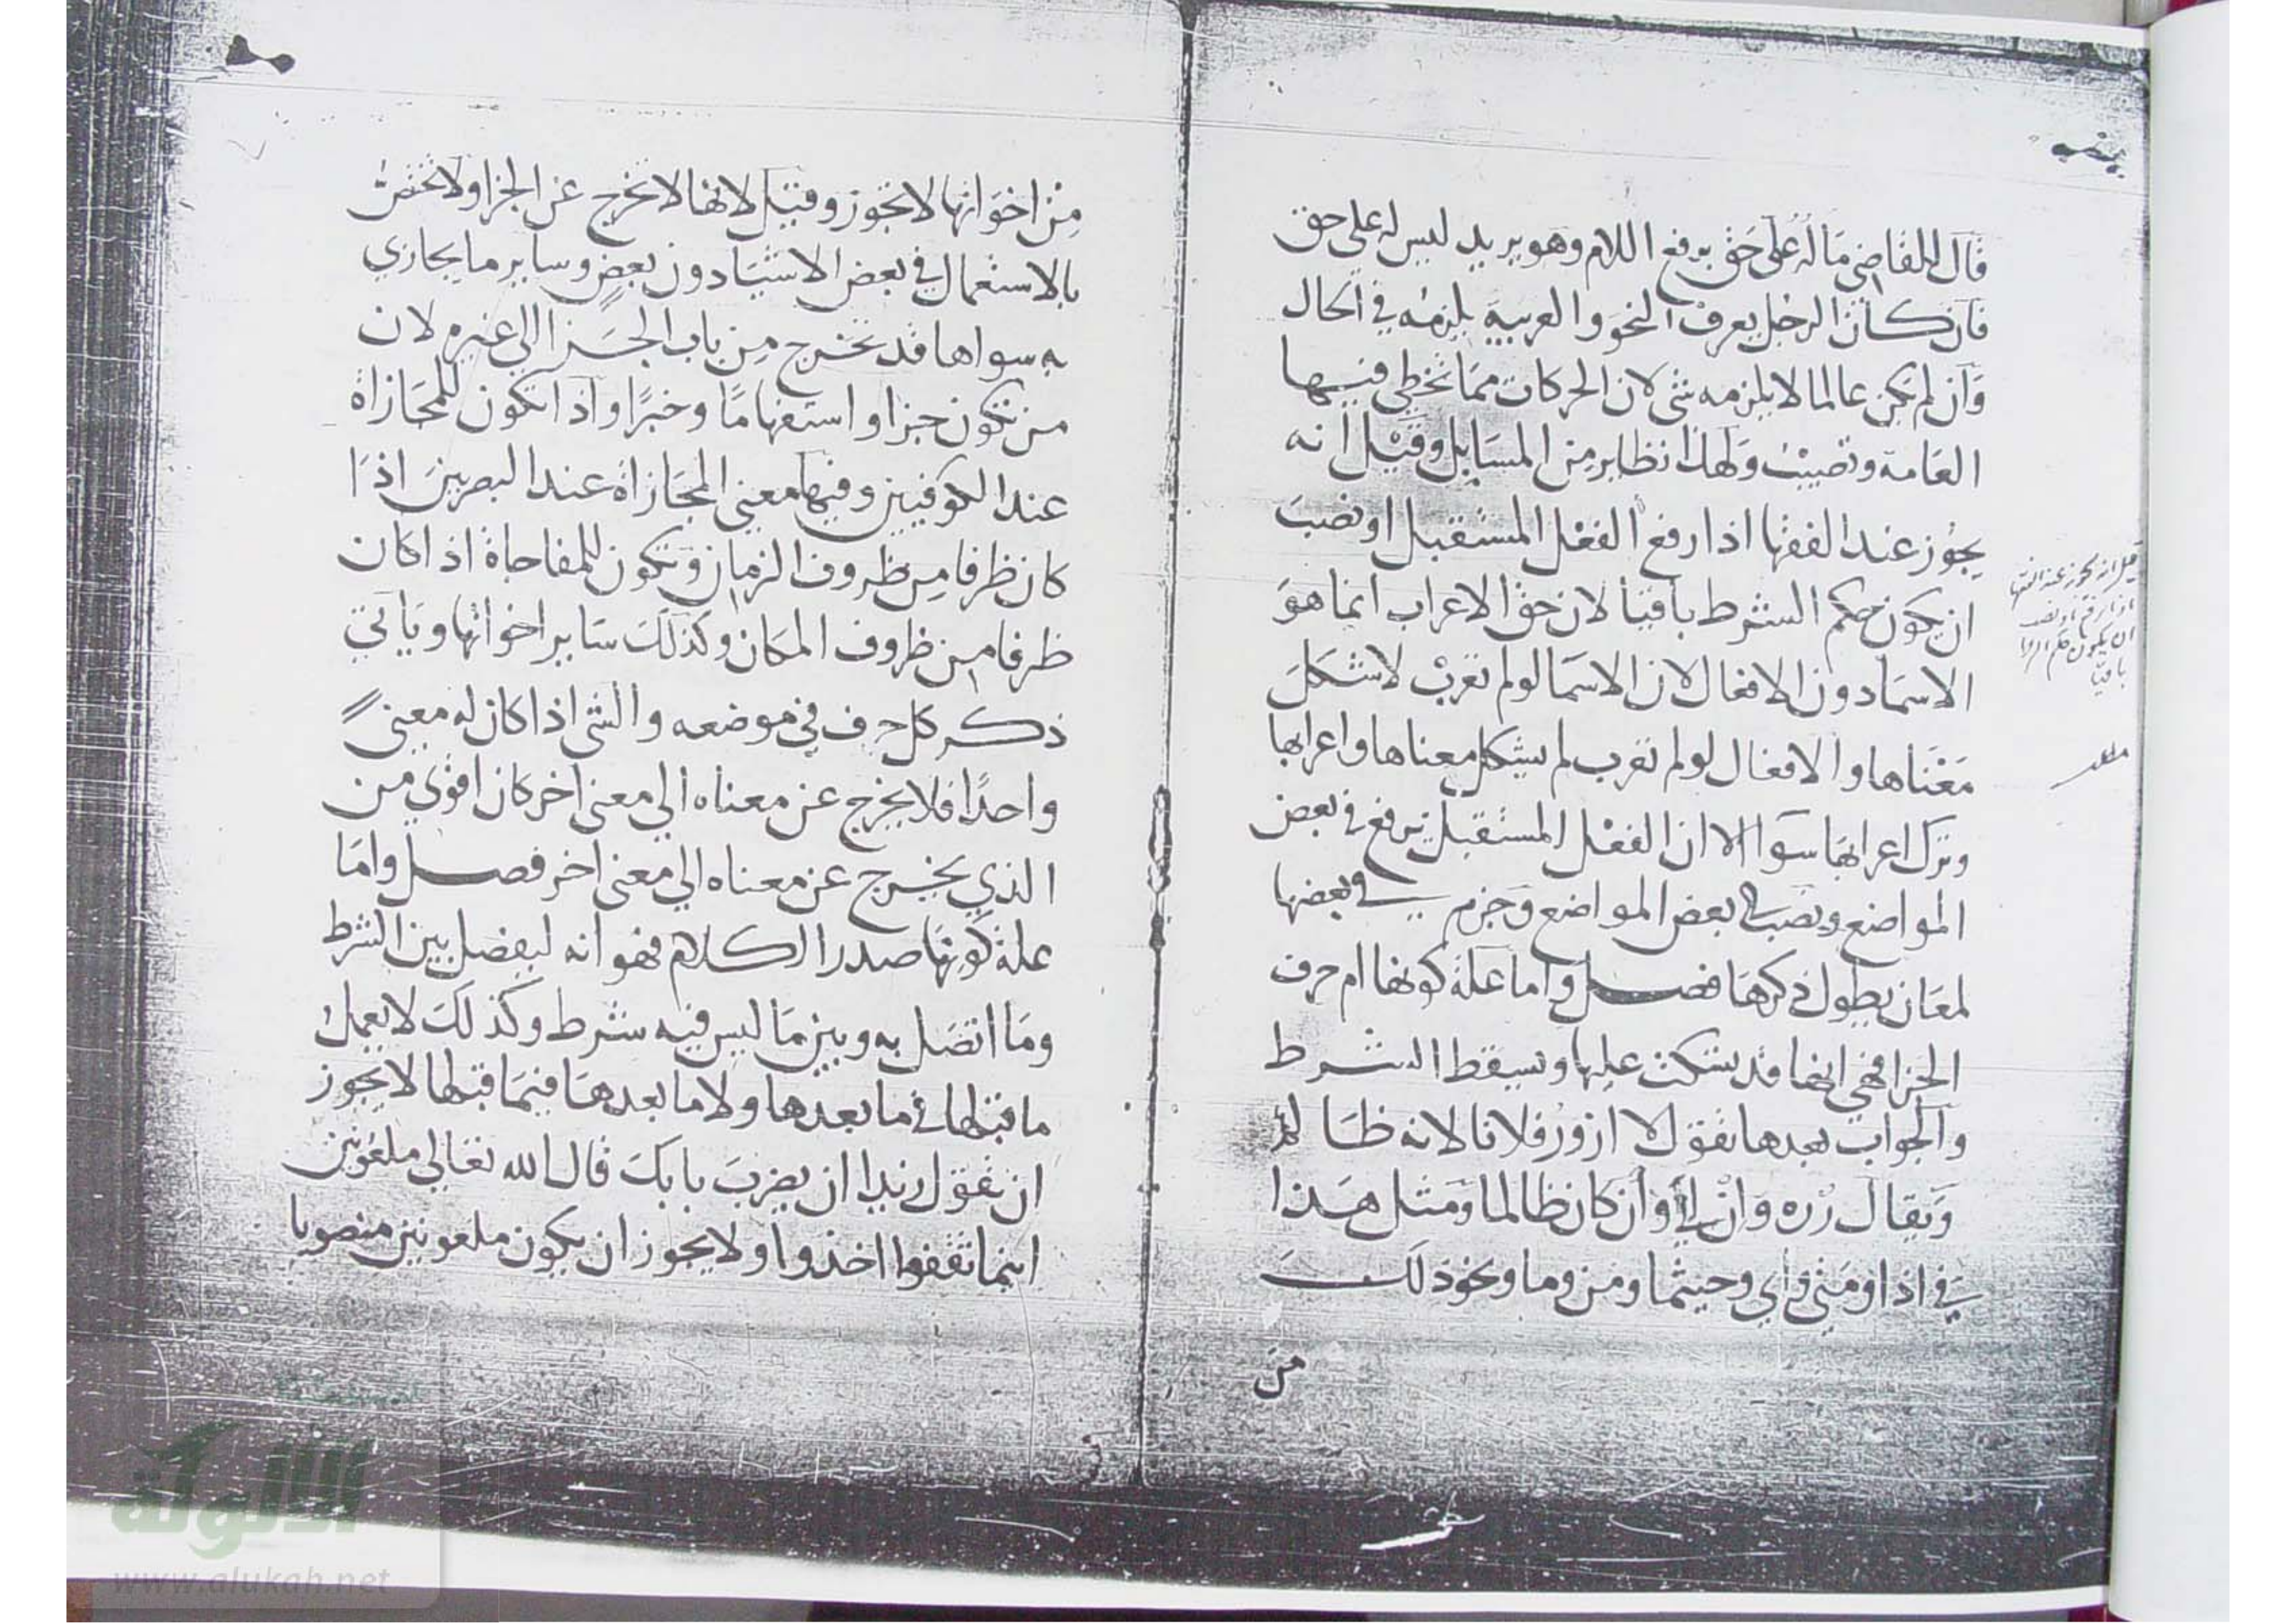 قال للقاضي ماله علي حق برفع اللام وهو يريد ليس له علي حق
فان كان الرجل يعرف النحو والعربية يلزمه في الحال
وان لم يكن عالما لا يلزمه شي لان الحركات مما تخطي فيها
العامة وتصيب ولهذا نظاير من المسايل وقيل انه
يجوز عند الفقها اذا رفع الفعل المستقبل او نصب
ان يكون حكم الشرط باقيا لان حق الاعراب انما هو
الاسما دون الافعال لان الاسما لو لم تعرب لاشكل
معناها والافعال لو لم تعرب لم يشكل معناها واعرابها
وترك اعرابها سوا الا ان الفعل المستقبل يرفع في بعض
المواضع ونصب في بعض المواضع وجزم في بعضها
لمعان يطول ذكرها فصل واما علة كونها ام حرف
الجزا فهي انها قد يسكت عليها ويسقط الشرط
والجواب بعدها تقول لا ازور فلانا لانه ظالم
ويقال زره وان اي وان كان ظالما ومثل هذا
في اذا ومتي واي وحيثما ومن وما ونحو ذلك
من
قيل انه يجوز عند الفقها
اذا رفع او نصب
ان يكون حكم
باقيا
مطلب
من اخواتها لا تجوز وقيل لانها لا تخرج عن الجزا ولا تختص
بالاستعمال في بعض الاشيا دون بعض وساير ما يجازي
به سواها قد تخرج من باب الجزا الي غيره لان
من تكون جزا واستفهاما وخبرا واذا تكون للمجازاة
عند الكوفيين وفيها معني المجازاة عند البصريين اذا
كان ظرفا من ظروف الزمان وتكون للمفاجاة اذا كان
ظرفا من ظروف المكان وكذلك ساير اخواتها وياتي
ذكر كل حرف في موضعه والشي اذا كان له معني
واحدا فلا يخرج عن معناه الي معني اخر كان اقوي من
الذي يخرج عن معناه الي معني اخر فصل واما
علة كونها صدر الكلام فهو انه ليفصل بين الشرط
وما اتصل به وبين ما ليس فيه شرط وكذلك لا يعمل
ما قبلها في ما بعدها ولا ما بعدها فيما قبلها لا يجوز
ان تقول زيدا ان يضرب بابك قال الله تعالي ملعونين
اينما ثقفوا اخذوا ولا يجوز ان يكون ملعونين منصوبا
الألوكة
www.alukah.net